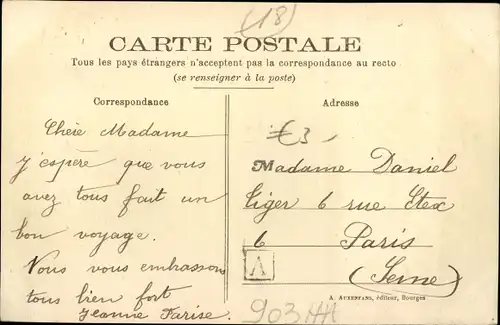 (18)
CARTE POSTALE
Tous les pays étrangers n'acceptent pas la correspondance au recto
(se renseigner à la poste)
Correspondance
Chère Madame
j'espère que vous
avez tous fait un
bon voyage.
Vous vous embrassons
tous bien fort
Jeanne
Adresse
€3-
Madame Daniel
6 rue
6 Paris
(Seine)
A
A. AUXENFANS, éditeur, Bourges
903